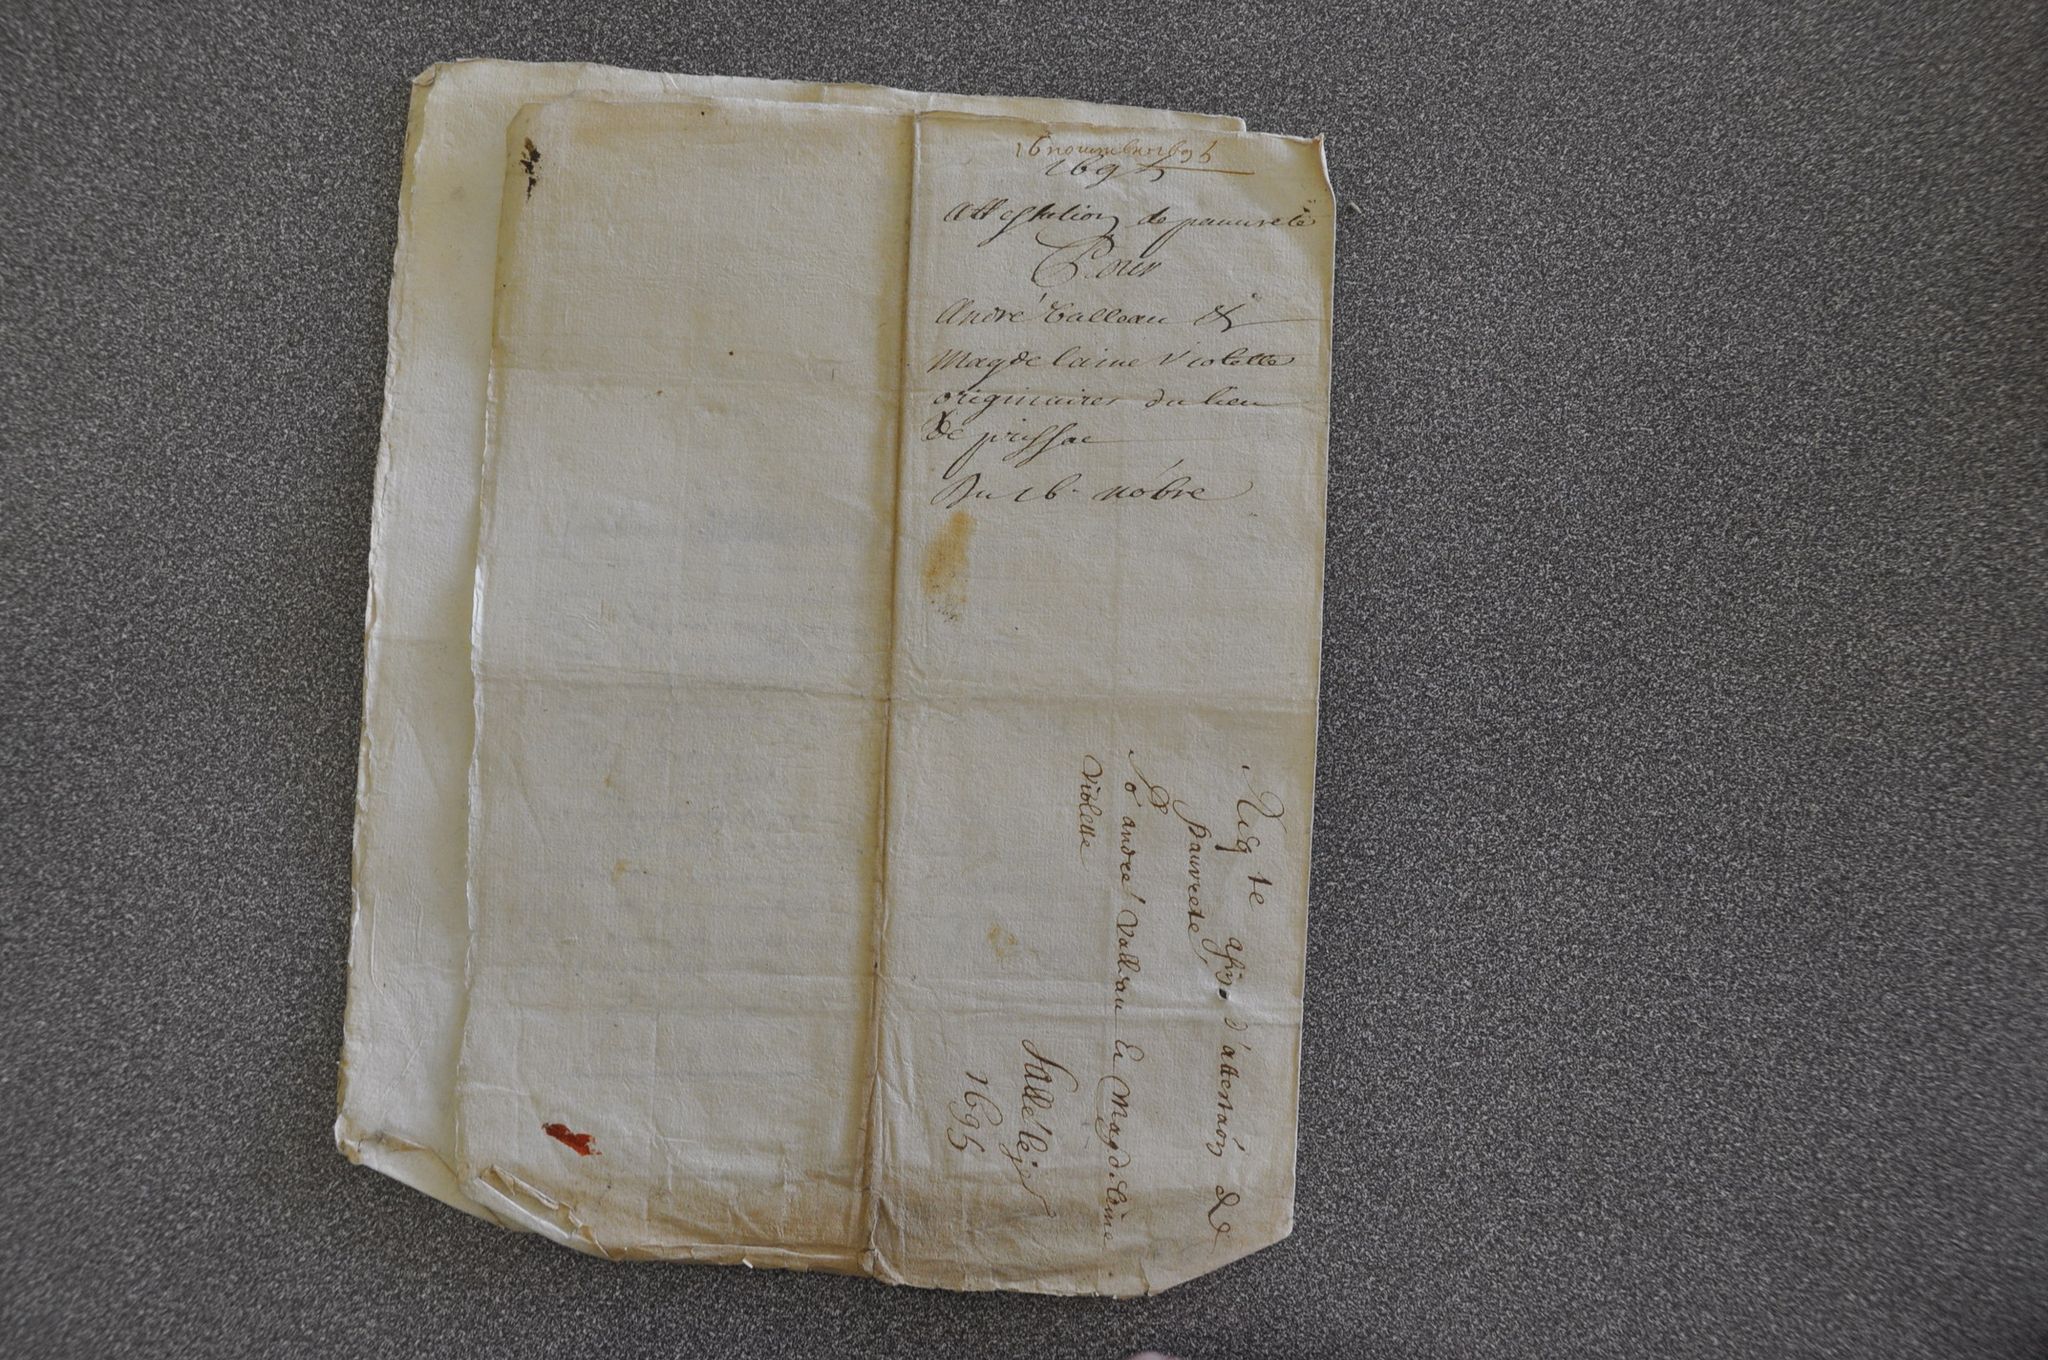 16 novembre 1695
1695
Attestation de pauureté
Pour
André Valleau &
Magdelaine Violette
originaires du lieu
de prissac
Du 16. nobre
Reqte afin d'attestaon de
pauvreté
Po andré Valleau & Magdelaine
violette
1695